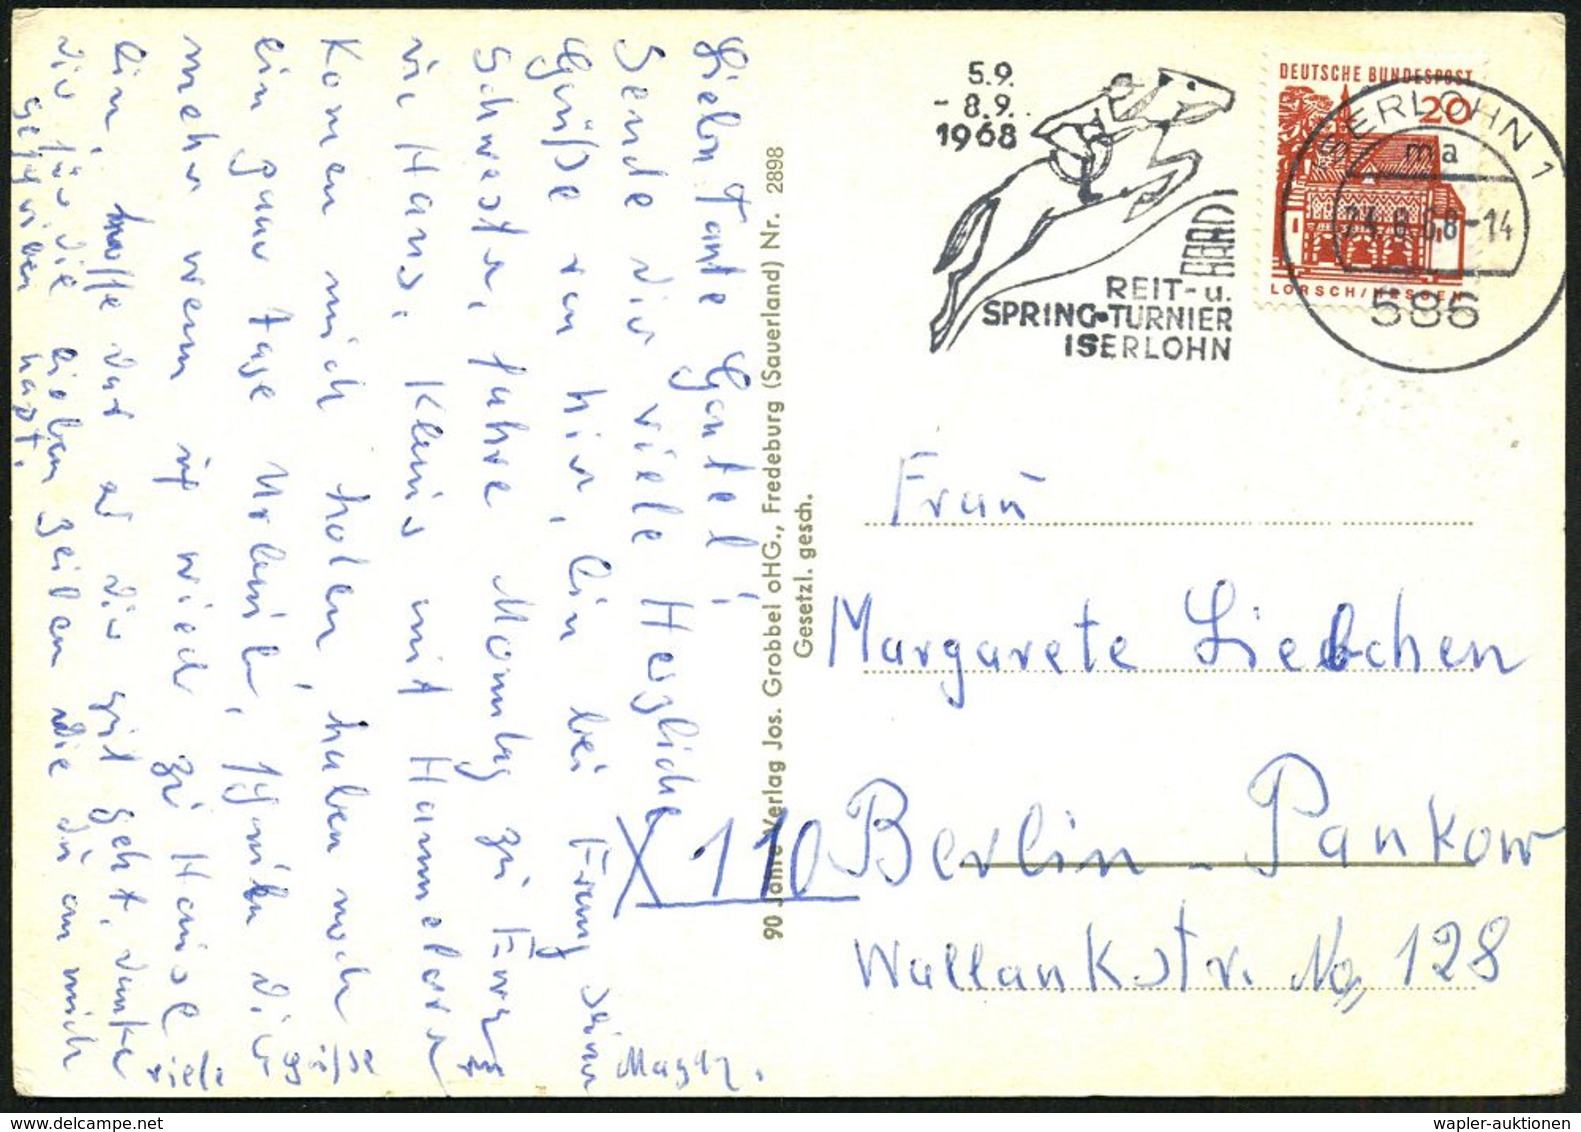 Sende dir viele Herzliche
Grüße von hier, bin bei Franz seiner
Schwester, fahre Montag zu
Hans, Klein mit
Komen mich holen, haben noch
ein paar Tage Urlaub,
mehr wenn ich wieder zu Hause
bin, hoffe das es dir gut geht, danke
dir für die lieben Zeilen die du an mich
geschrieben hast.
viele Grüße
90 Jahre Verlag Jos. Grobbel oHG., Fredeburg (Sauerland) Nr. 2898
Gesetzl. gesch.
5.9.
- 8.9.
1968
REIT- u.
SPRING-TURNIER
ISERLOHN
DEUTSCHE BUNDESPOST
20
LORSCH/HESSEN
ISERLOHN 1
ma
8.68-14
586
Frau
Margarete Liebchen
X 110 Berlin - Pankow
Wallankstr. No 128
wapler-auktionen